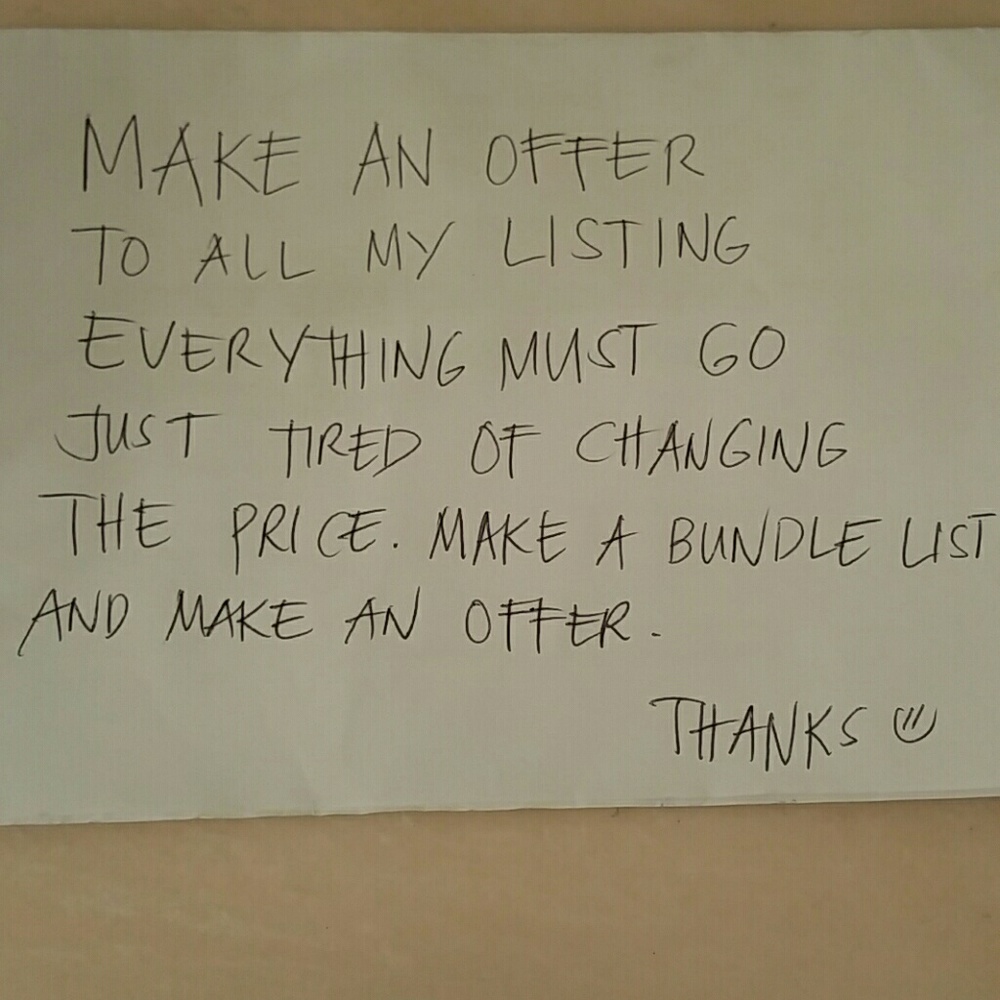 MAKE AN OFFER
TO ALL MY LISTING
EVERYTHING MUST GO
JUST TIRED OF CHANGING
THE PRICE. MAKE A BUNDLE LIST
AND MAKE AN OFFER.
THANKS